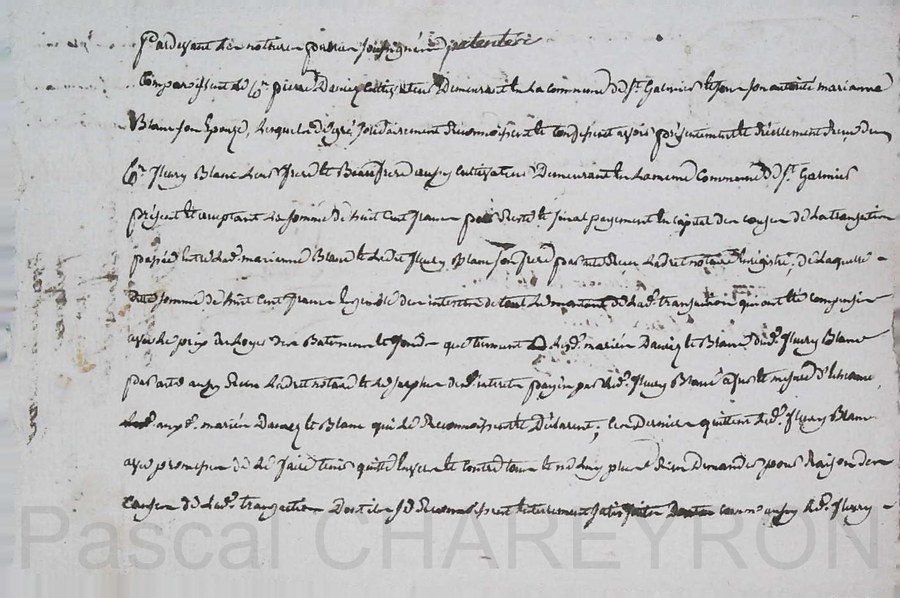 Pardevant les notaires publics soussignés patentés
Comparoissent le Cn. pierre Daviez Cultivateur Demeurant en La commune de St. Galmier et Sous son autorité marianne
Blanc son Epouze, Lesquels de gré, solidairement Reconnoissent et confessent avoir présentement et Réellement Reçu du
Cn. fleury Blanc Leur frere et Beaufrere aussy Cultivateur Demeurant en La meme Commune de St. Galmier
présent et acceptant La somme de huit Cent francs pour Reste et final payement en capital des causes de La transaction
passée entre Lad. marianne Blanc et Ledit fleury Blanc son frere par acte Reçu Ledit notaire Enrégistré, de Laquelle
dite somme de huit Cent francs Ensemble des interets de tout Le montant de Lad. transaction qui ont été compensés
avec Le prix du Loyer des Batiments et fonds que tiennent Lesd. mariés Daviez et Blanc, dud. fleury Blanc
par acte aussy Reçu Ledit notaire et Le surplus desd. interets payés par led. fleury Blanc a fur et mesure d'échéance,
auxd. mariés Daviez et Blanc qui Le Reconnoissent et Déclarent; Ces Derniers quittent Led. fleury Blanc
avec promesse de Le faire tenir quitte Envers et contre tous et ne Luy plus Rien demander pour Raison des
causes de Lad. transaction Dont ils se Reconnoissent entierement satisfaits comme aussy Led. fleury
Pascal CHAREYRON